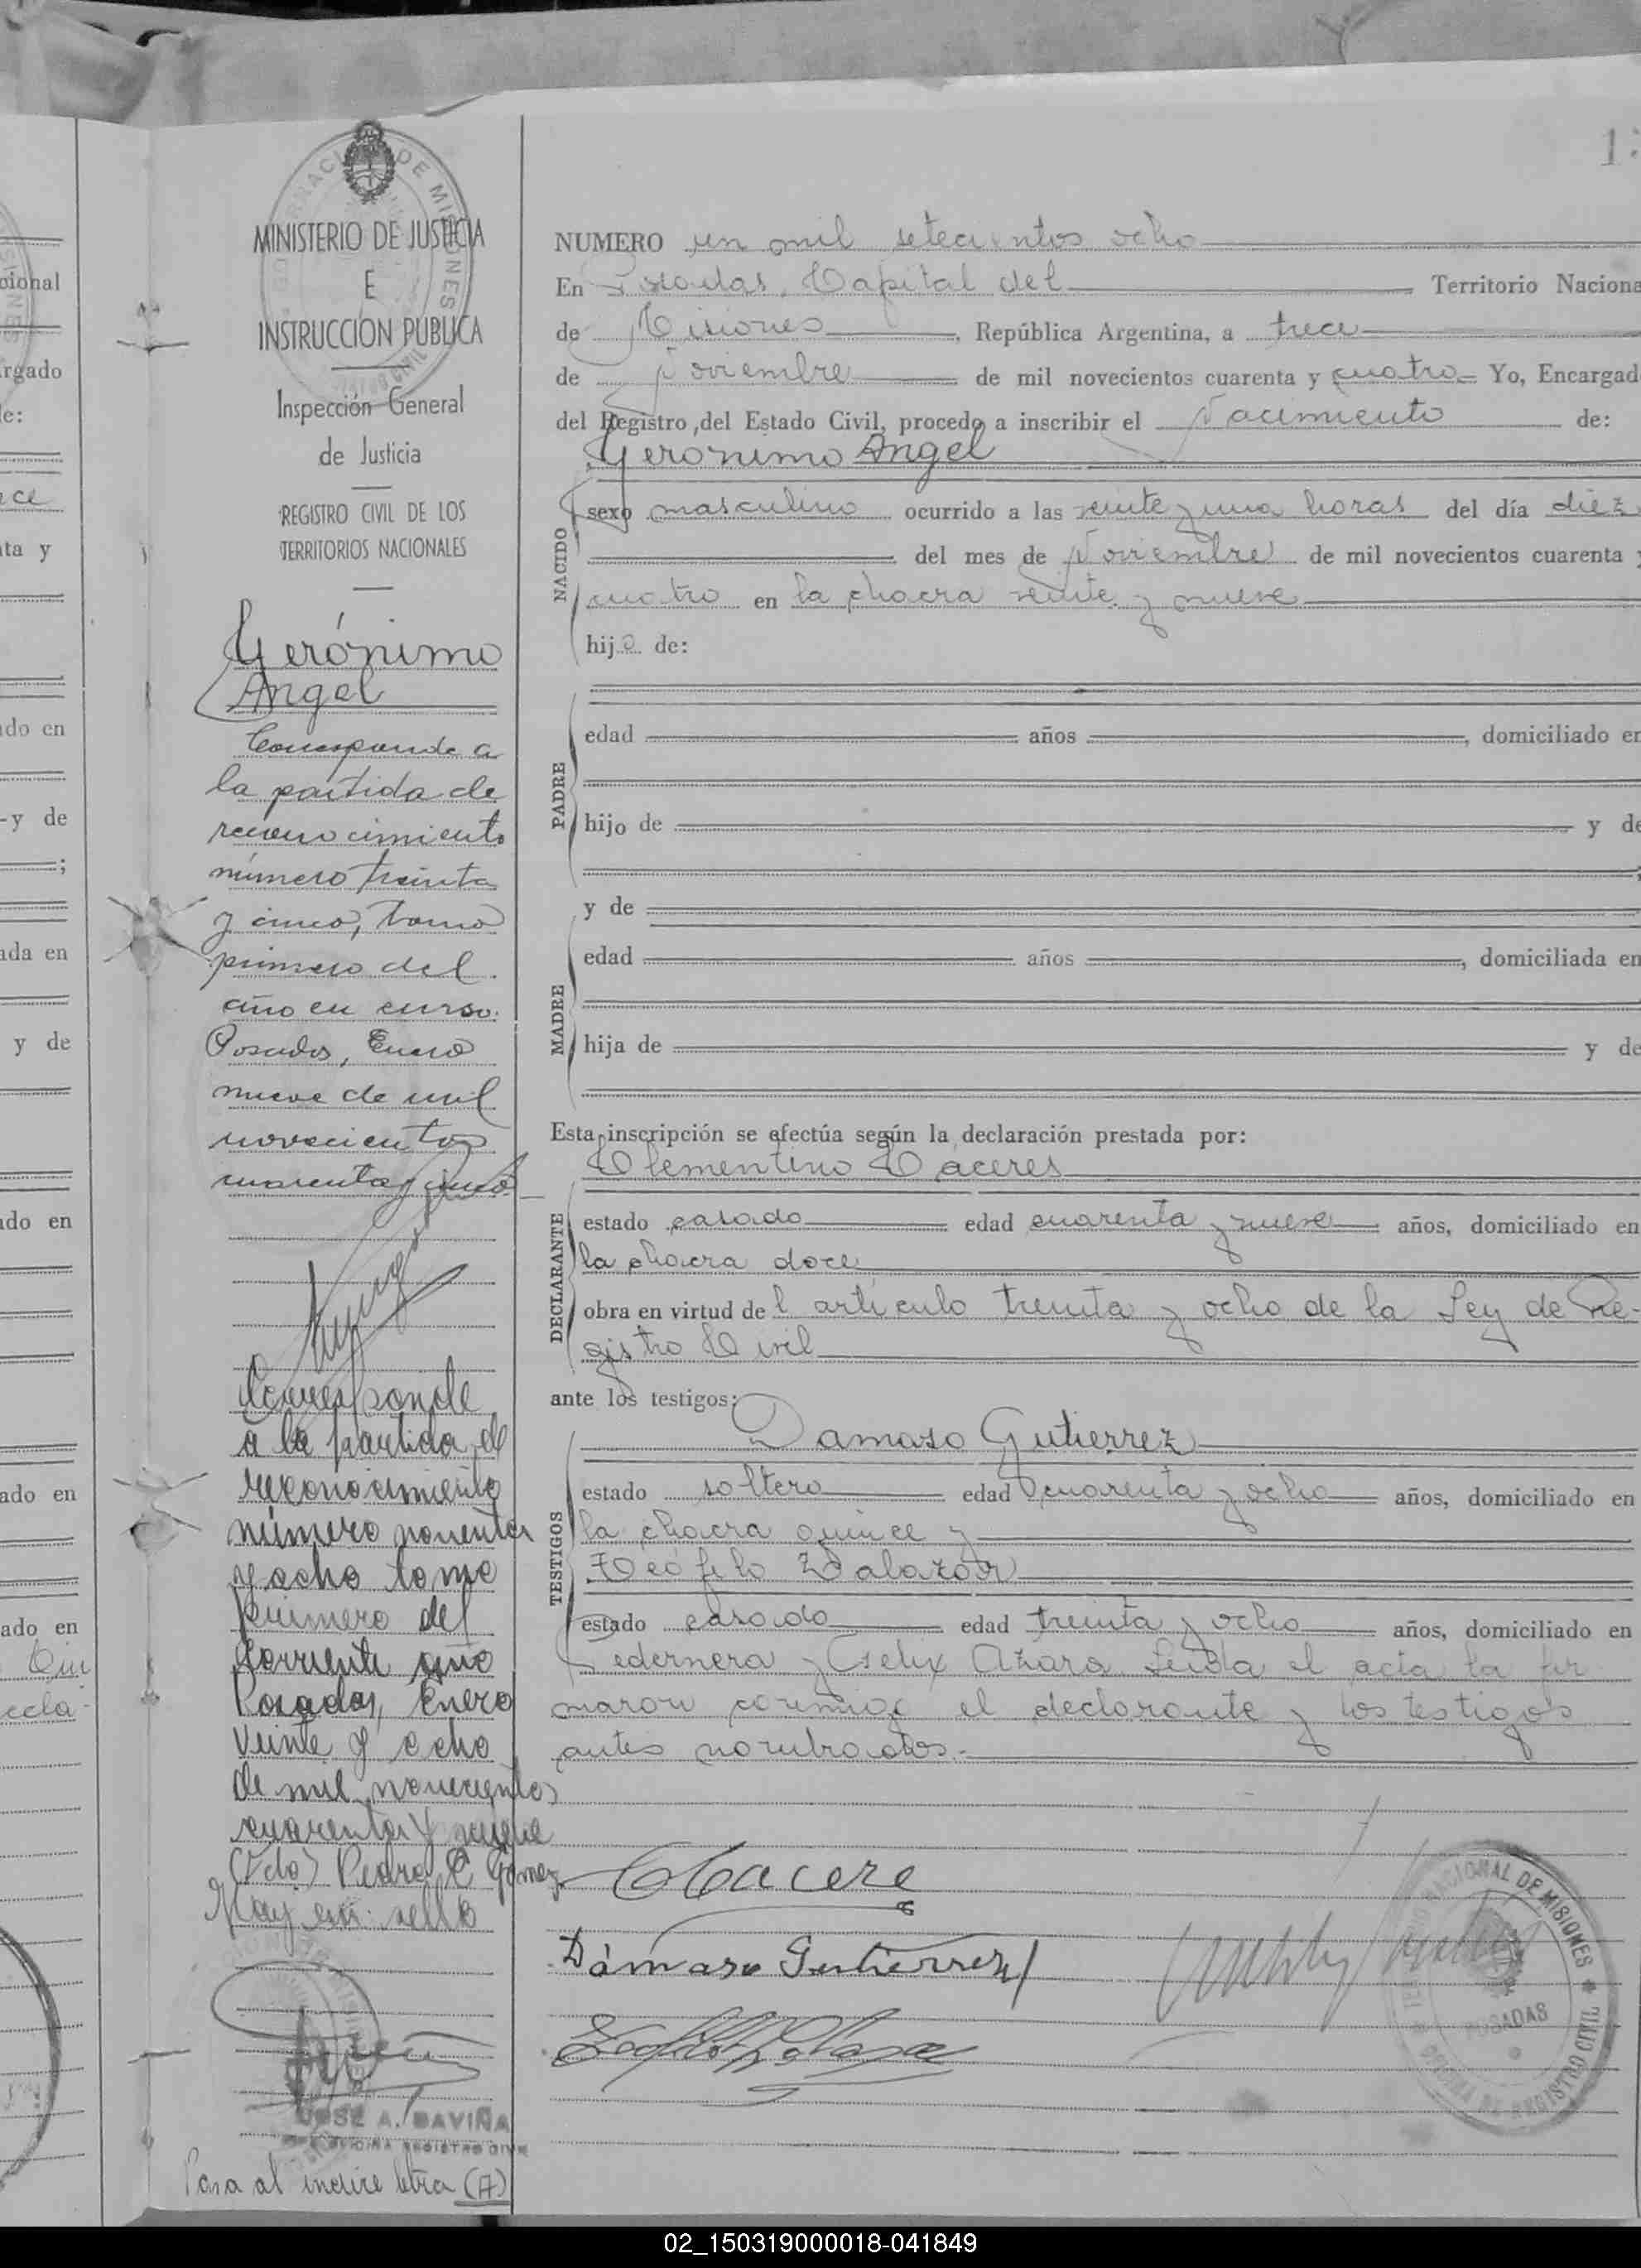 cional
argado
de:
nce
nta y
ado en
-y de
ada en
y de
ado en
ado en
ado en
GOBERNACION DE MISIONES
MINISTERIO DE JUSTICIA
E
INSTRUCCION PUBLICA
Inspección General
de Justicia
REGISTRO CIVIL DE LOS
TERRITORIOS NACIONALES
Gerónimo
Angel
Corresponde a
la partida de
reconocimiento
número treinta
y cinco, tomo
primero del
año en curso.
Posadas, Enero
nueve de mil
novecientos
cuarenta y cinco.
Corresponde
a la partida de
reconocimiento
número noventa
y ocho tomo
primero del
corriente año
Posadas, Enero
Veinte y ocho
de mil novecientos
cuarenta y nueve
(Fdo) Pedro C. Gómez
Hay un sello
JOSE A. GAVIÑA
OFICINA REGISTRO CIVIL
Pasa al indice letra (A)
NUMERO un mil setecientos ocho
En Posadas, Capital del Territorio Naciona
de Misiones, República Argentina, a trece
de Noviembre de mil novecientos cuarenta y cuatro Yo, Encargad
del Registro del Estado Civil, procedo a inscribir el Nacimiento de:
Geronimo Angel
NACIDO
sexo masculino ocurrido a las veinte y una horas del día diez
del mes de Noviembre de mil novecientos cuarenta y
cuatro en la chacra veinte y nueve
hijo de:
PADRE
edad años, domiciliado en
hijo de y de
y de
MADRE
edad años, domiciliada en
hija de y de
Esta inscripción se efectúa según la declaración prestada por:
Clementino Cáceres
DECLARANTE
estado casado edad cuarenta y nueve años, domiciliado en
la chacra doce
obra en virtud del articulo treinta y ocho de la Ley de Re-
gistro Civil
ante los testigos:
Damaso Gutierrez
TESTIGOS
estado soltero edad cuarenta y ocho años, domiciliado en
la chacra quince y
Teófilo Zalazar
estado casado edad treinta y ocho años, domiciliado en
Pedernera y Felix Azara Leida el acta la fir
maron conmigo el declarante y los testigos
antes nombrados.-
C Cacere
Dámaso Gutierrez
NACIONAL DE MISIONES
POSADAS
REGISTRO CIVIL
02_150319000018-041849